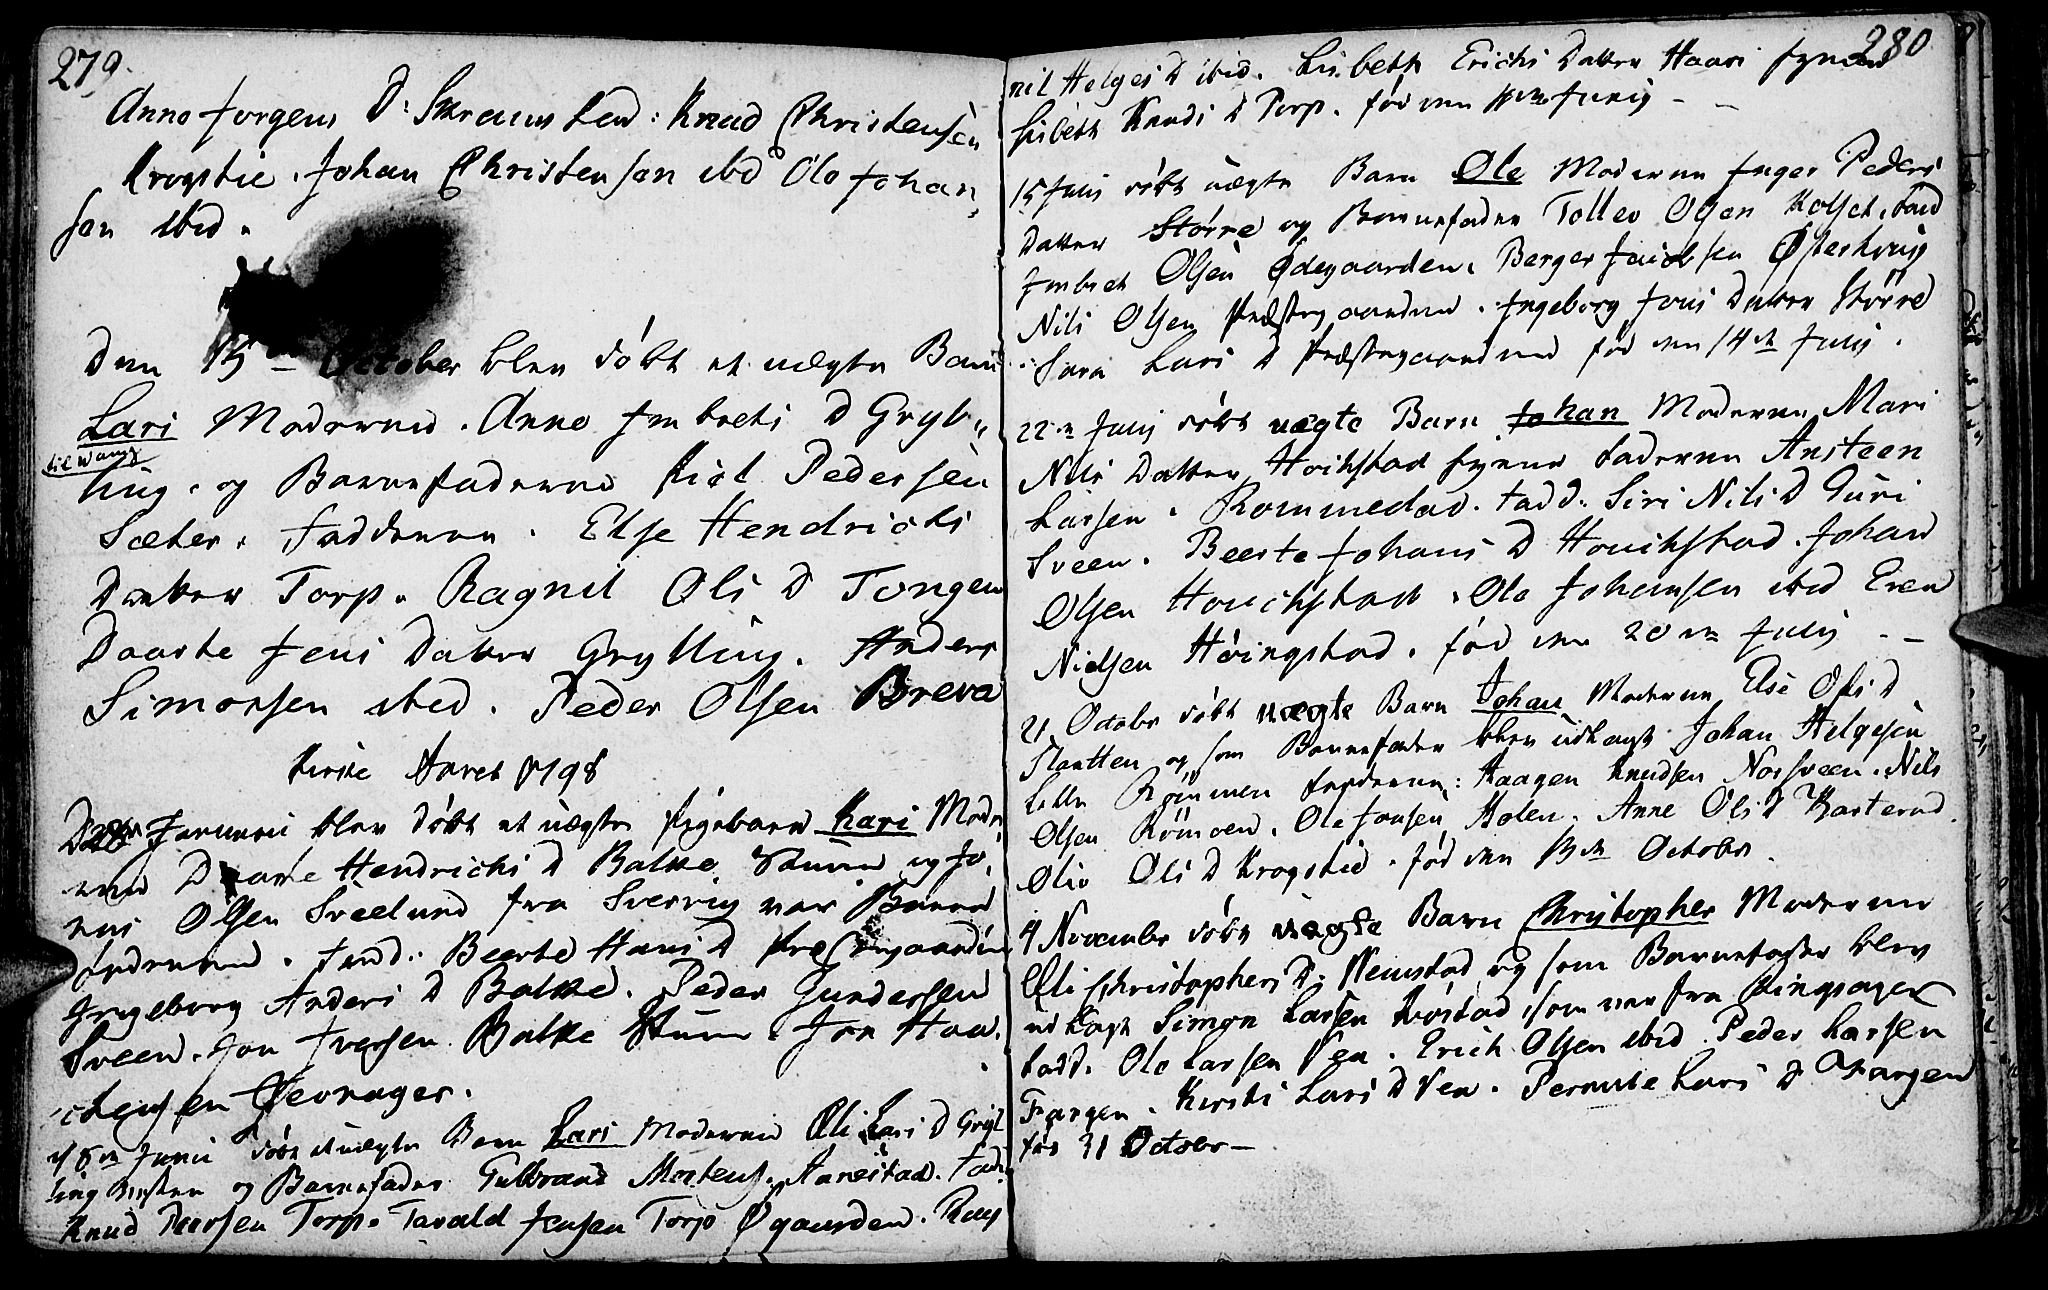 279
Anne Jorgens D: Skramstad: Knud Christensen
Krogstie. Johan Christensen ibid Ole Johan„
sen ibid.
Den 15de October blev döbt et uægte Barn
Lars Moderen Anne Embrets D Gryl„
til Wang
ling, og Barnefaderen Kiel Pedersen
Sæter. Fadderne. Else Hendrichs
Datter Torp. Ragnil Ols D Tongen
Daarte Jens Datter Grylling. Anders
Simonsen ibid. Peder Olsen Breva
Kirke Aaret 1798
Januarii blev döbt et uægte Pigebarn Kari Mode„
ren Daarte Hendrichs D Balke og Jo„
nas Olsen Sveelund fra Sverrig var Barne
faderen. Fadd: Beerte Hans D Præstegaarden
Ingeborg Anders D Balke. Peder Gundersen
Sveen. Jon Iversen Balke Jon Haa„
gensen
Junii döbt et uægte Barn Lars Moderen Oli Lars D Gryl
ling og Barnefader Gulbrand Mortens. Aanestad. Fad:
Knud Iversen Torp. Tarald Jensen Torp Øgaarden. Rag
280
nil Helges D ibid. Lisbeth Erichs Datter Haars
Lisbeth Knuds D Torp. föd den Junij –
15 Julij döbt uægte Barn Ole Moderen Inger Peders
Datter Större og Barnefader Tollev Olsen Kolset. Fad
Embret Olsen Ödegaarden. Berger Jacobsen Østerhuug
Nils Olsen Præstegaarden. Ingeborg Jons Datter Större
Sara Lars D Præstegaarden föd den 14de Julij.
22de Julij döbt uægte Barn Johan Moderen Mari
Nils Datter Hoichstad Faderen Ansteen
Larsen. Rommedad. Fadd: Siri Nils D Guri
Sveen. Beerte Johans D Houchstad. Johan
Olsen Houchstad. Ole Johansen ibid Even
Nielsen Höingstad. föd den 20de Julij –
21 Octobr döbt uægte Barn Johan Moderen Else Ols D
Slaatten og som Barnefader blev udlagt Johan Helgesen
Lille Römmen Fadderne: Haagen Knudsen Norsveen. Nils
Olsen Römoen. Ole Jonsen Holen. Anne Ols D
Olie Ols D Krogstid. föd den Octobr.
4 Novembr döbt uægte Barn Christopher Moderen
Oli Christophers D: Nemstad og som Barnefader blev
udlagt Simon Larsen som var fra Ringsager
Fadd. Ole Larsen Ven. Erich Olsen ibid. Peder Larsen
Fargen. Kirsti Lars D Ven. Pernille Lars D Fargen
föd 31 Octobr –